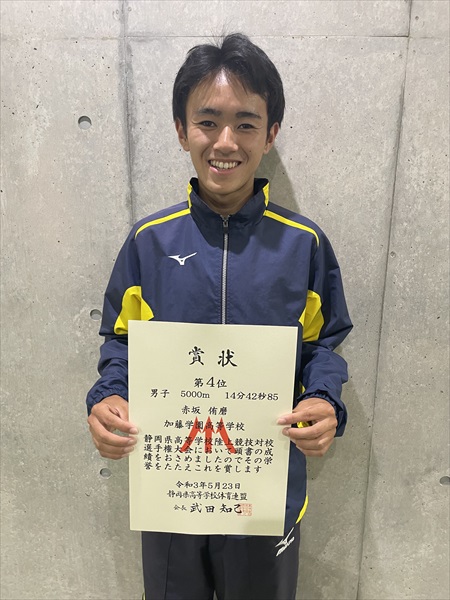 賞状
第4位
男子 5000m 14分42秒85
赤坂 侑磨
加藤学園高等学校
静岡県高等学校陸上競技対校
選手権大会において頭書の成
績をおさめましたのでその栄
誉をたたえこれを賞します
令和3年5月23日
静岡県高等学校体育連盟
会長 武田知己